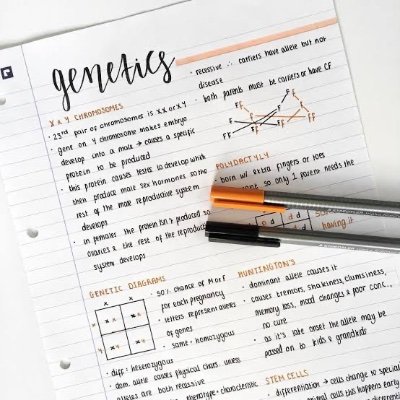 genetics
X & Y CHROMOSOMES
· 23rd pair of chromosomes is XX or XY
· gene on Y chromosome makes embryo
develop into a male → causes a specific
protein to be produced
· this protein causes testes to develop which
then produce male sex hormones so the
rest of the male reproductive system
develops
· in females the protein isn't produced so
ovaries & the rest of the reproductive
system develops
GENETIC DIAGRAMS
X Y
X
X
· 50% chance of M or F
for each pregnancy
· letters represent alleles
of genes
· same = homozygous
· diff = heterozygous
· dom. allele causes physical char. unless
alleles are both recessive
phenotype = characteristic
· recessive ∴ carriers have allele but not
disease
· both parents must be carriers or have CF
Ff Ff
FF Ff Ff ff
POLYDACTYLY
· born w/ extra fingers or toes
so only 1 parent needs the
d d
having it
HUNTINGTON'S
· dominant allele causes it
· causes tremors, shakiness, clumsiness,
memory loss, mood changes & poor conc.
· no cure
· as it's late onset the allele may be
passed on to kids & grandkids
STEM CELLS
· differentiation → cells change to special
animal cells this happens early